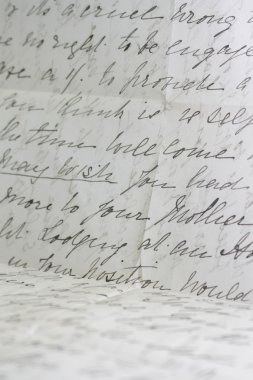 is a cruel wrong
no right to be engage
to provide a
you think is is self
the time will come
may wish you had
more to your Mother
Lodging at an Ho
in your position would